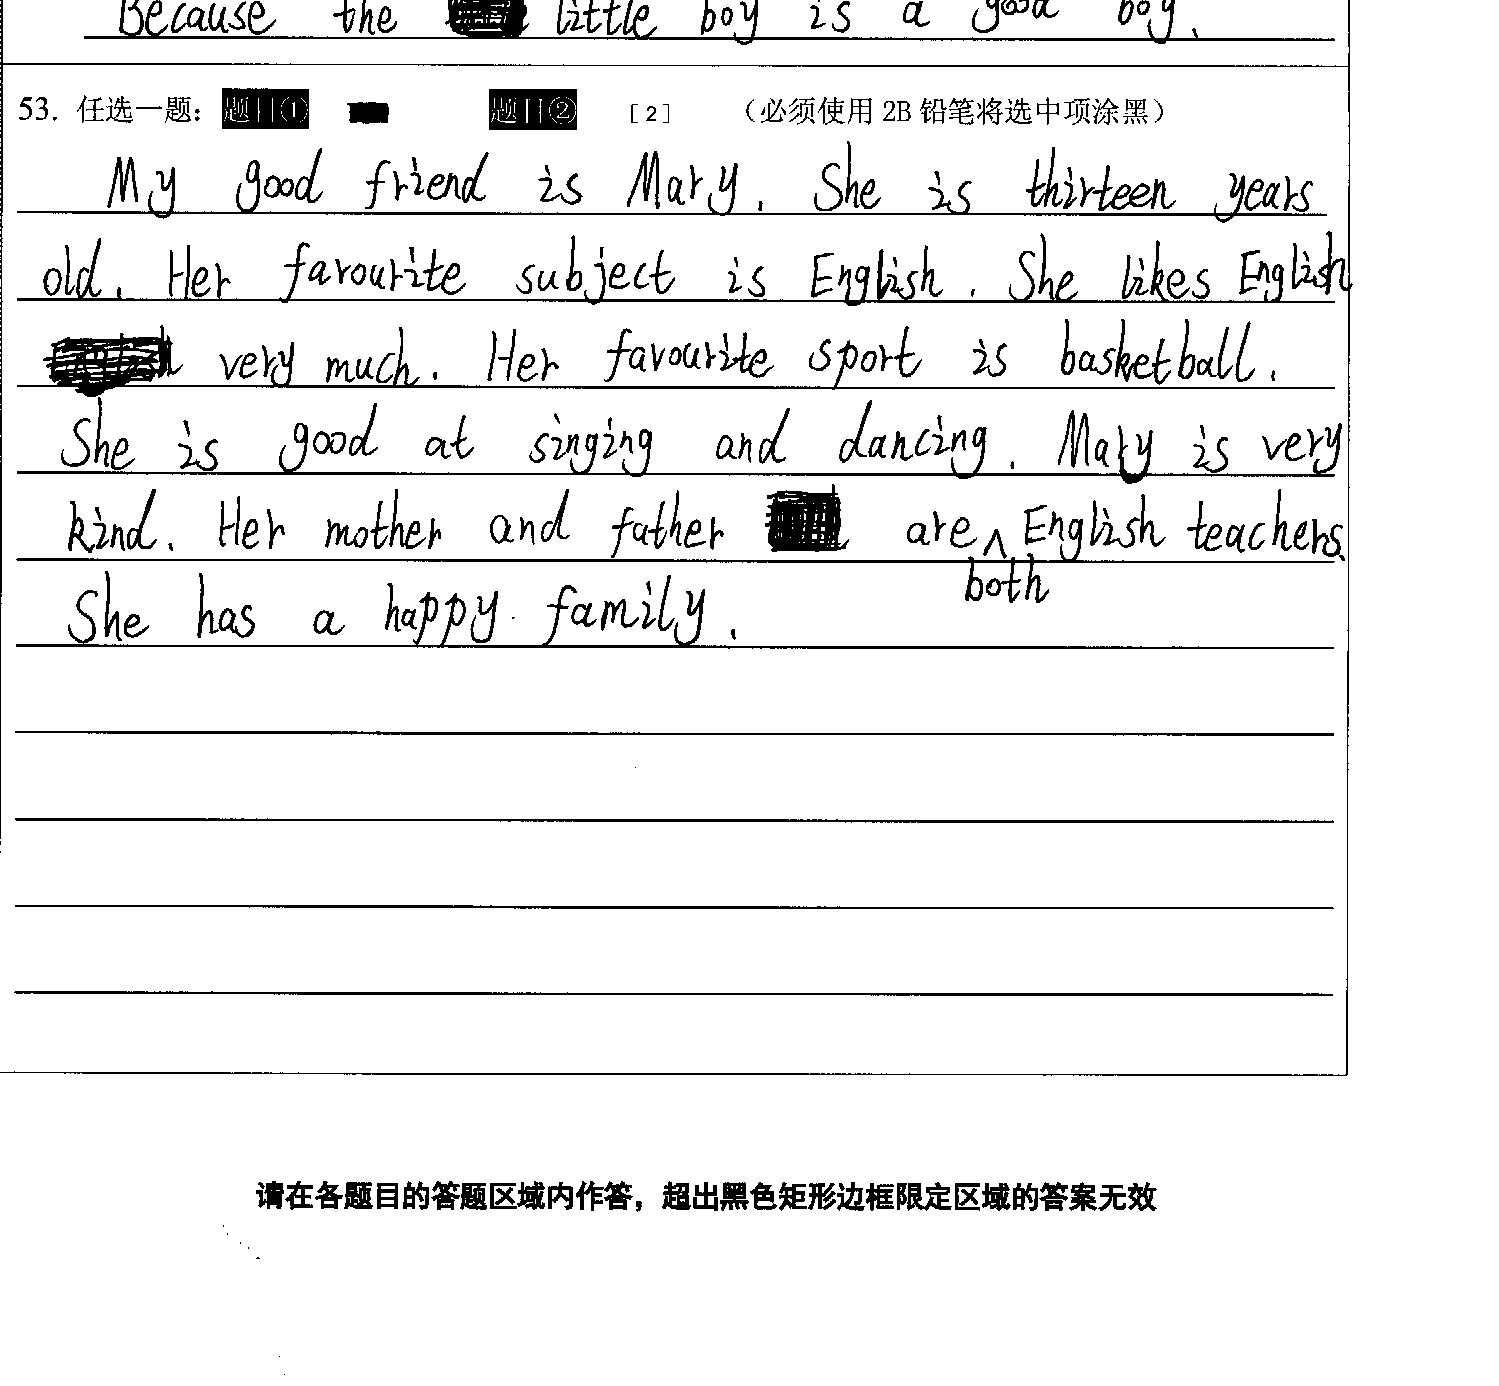 Because the little boy is a good boy.
53. 任选一题: 题目① 题目② [2] (必须使用 2B 铅笔将选中项涂黑)
My good friend is Mary. She is thirteen years
old. Her favourite subject is English. She likes English
very much. Her favourite sport is basketball.
She is good at singing and dancing. Mary is very
kind. Her mother and father are both English teachers.
She has a happy family.
请在各题目的答题区域内作答，超出黑色矩形边框限定区域的答案无效